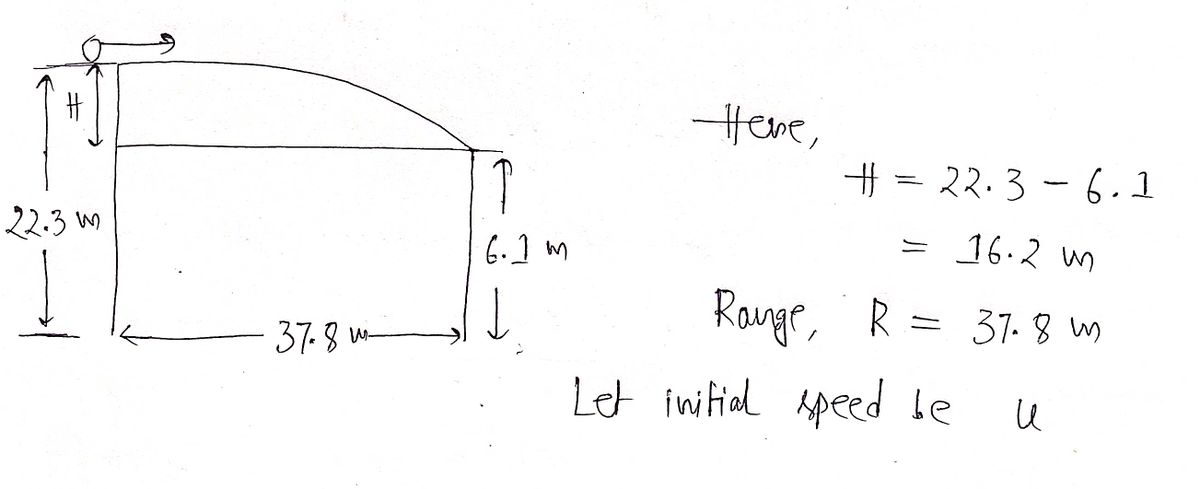 H
22.3 m
6.1 m
37.8 m
Here,
H = 22.3 - 6.1
= 16.2 m
Range, R = 37.8 m
Let initial speed be u